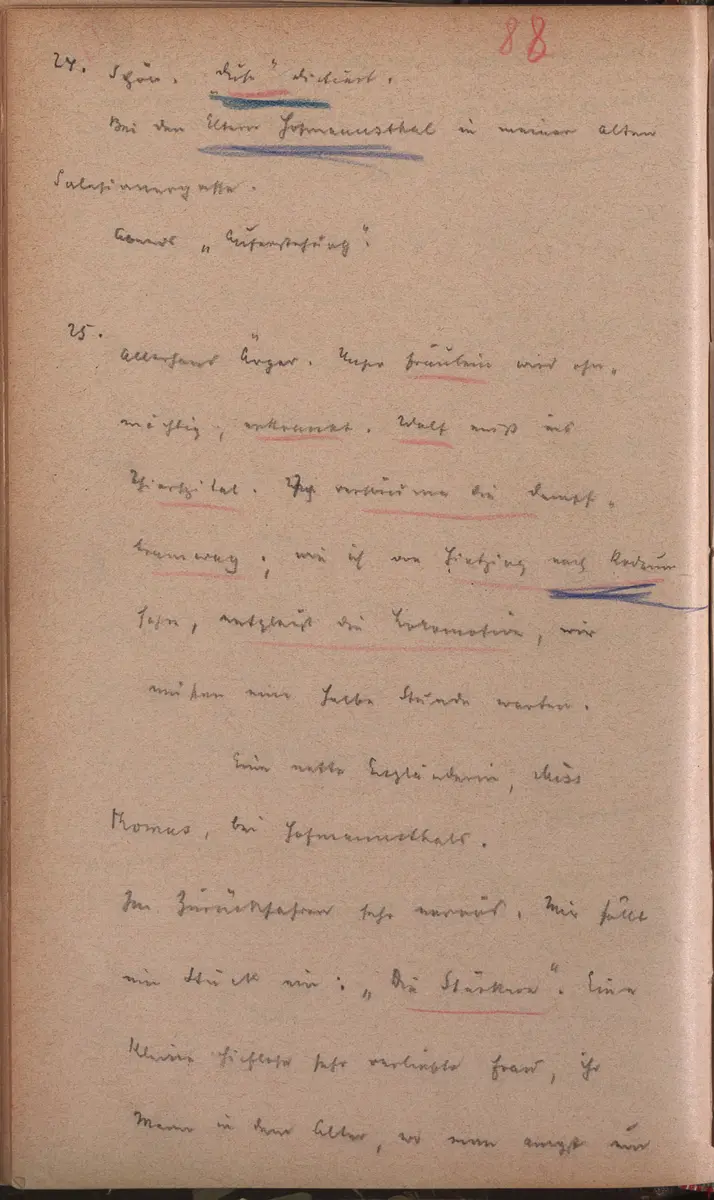 88
24. Schön. „Duse“ dictiert.
Bei den Eltern Hofmannsthal in meiner alten
Salesianergasse.
Abends „Auferstehung“.
25.
Allerhand Ärger. Unser Fräulein wird ohn„
mächtig, erkrankt. Wolf muß ins
Thierspital. Ich versäume die Dampf„
tramway; wie ich von Hietzing nach Rodaun
fahre, entgleist die Lokomotive, wir
müssen eine halbe Stunde warten.
Eine nette Engländerin, Miss
Thomas, bei Hofmannsthals.
Im Zurückfahren sehr nervös. Mir fällt
ein Stück ein: „Die Stärkere“. Eine
kleine hilflose sehr verliebte Frau, ihr
Mann in dem Alter, wo man angst um